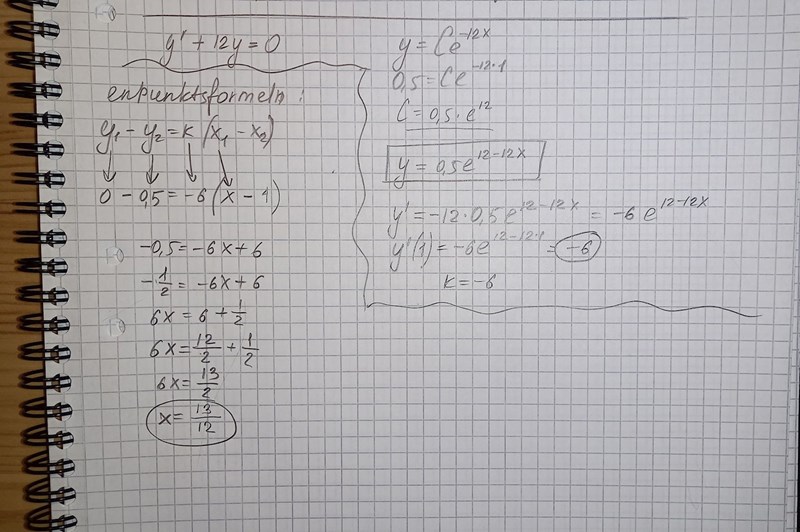 y' + 12y = 0
enpunktsformeln:
y₁ - y₂ = k(x₁ - x₂)
0 - 0,5 = -6(x - 1)
-0,5 = -6x + 6
-1/2 = -6x + 6
6x = 6 + 1/2
6x = 12/2 + 1/2
6x = 13/2
x = 13/12
y = Ce^(-12x)
0,5 = Ce^(-12·1)
C = 0,5 · e^12
y = 0,5e^(12-12x)
y' = -12 · 0,5e^(12-12x) = -6e^(12-12x)
y'(1) = -6e^(12-12·1) = -6
k = -6